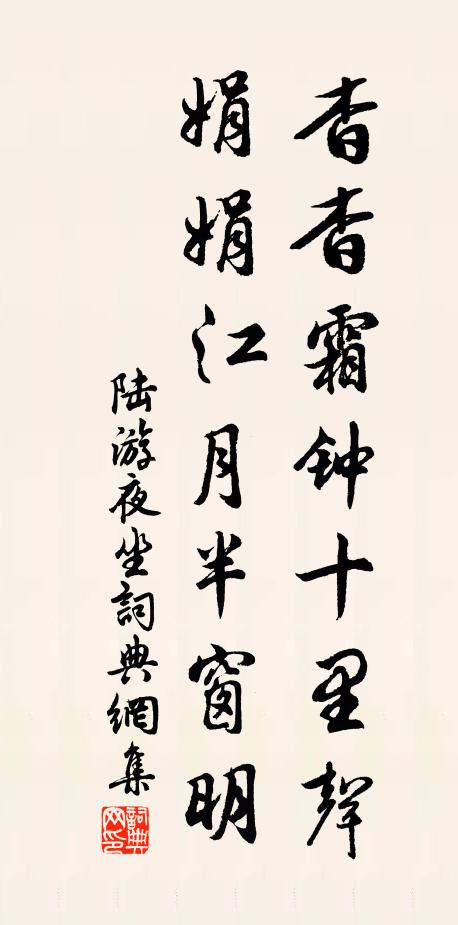 杳杳霜钟十里聲
娟娟江月半窗明
陆游夜坐詞典網集
詞典网印